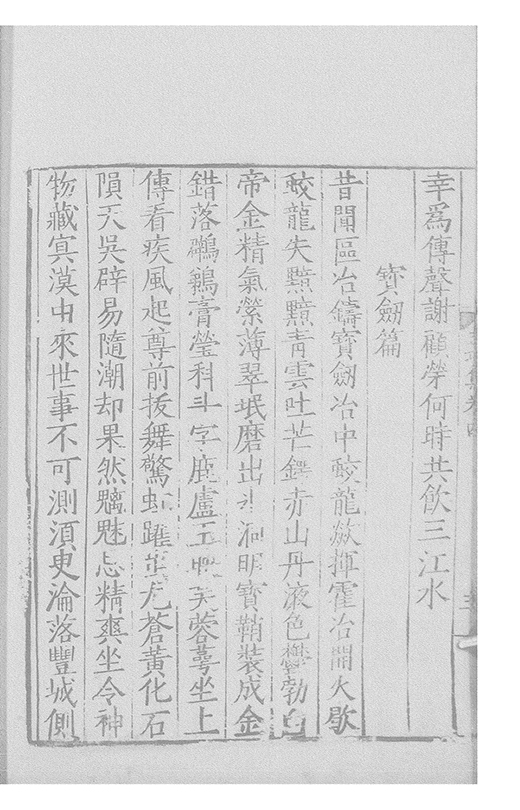 幸爲傳聲謝顧勞何時共飲三江水
寶劒篇
昔聞區冶鑄寶劒冶中蛟龍歘揮霍冶開火歇
蛟龍失黯黯青雲吐芒鍔赤山丹液色鬱勃白
帝金精氣縈薄翠珉磨出洞眀寶鞘裝成金
錯落鸊鵜膏瑩科斗字鹿盧玉芙蓉萼坐上
傳看疾風起尊前拔舞驚虹躍蒼黃化石
隕天吳辟易隨潮却果然魑魅忘精爽坐令神
物藏㝠漠由來世事不可測須臾淪落豐城側